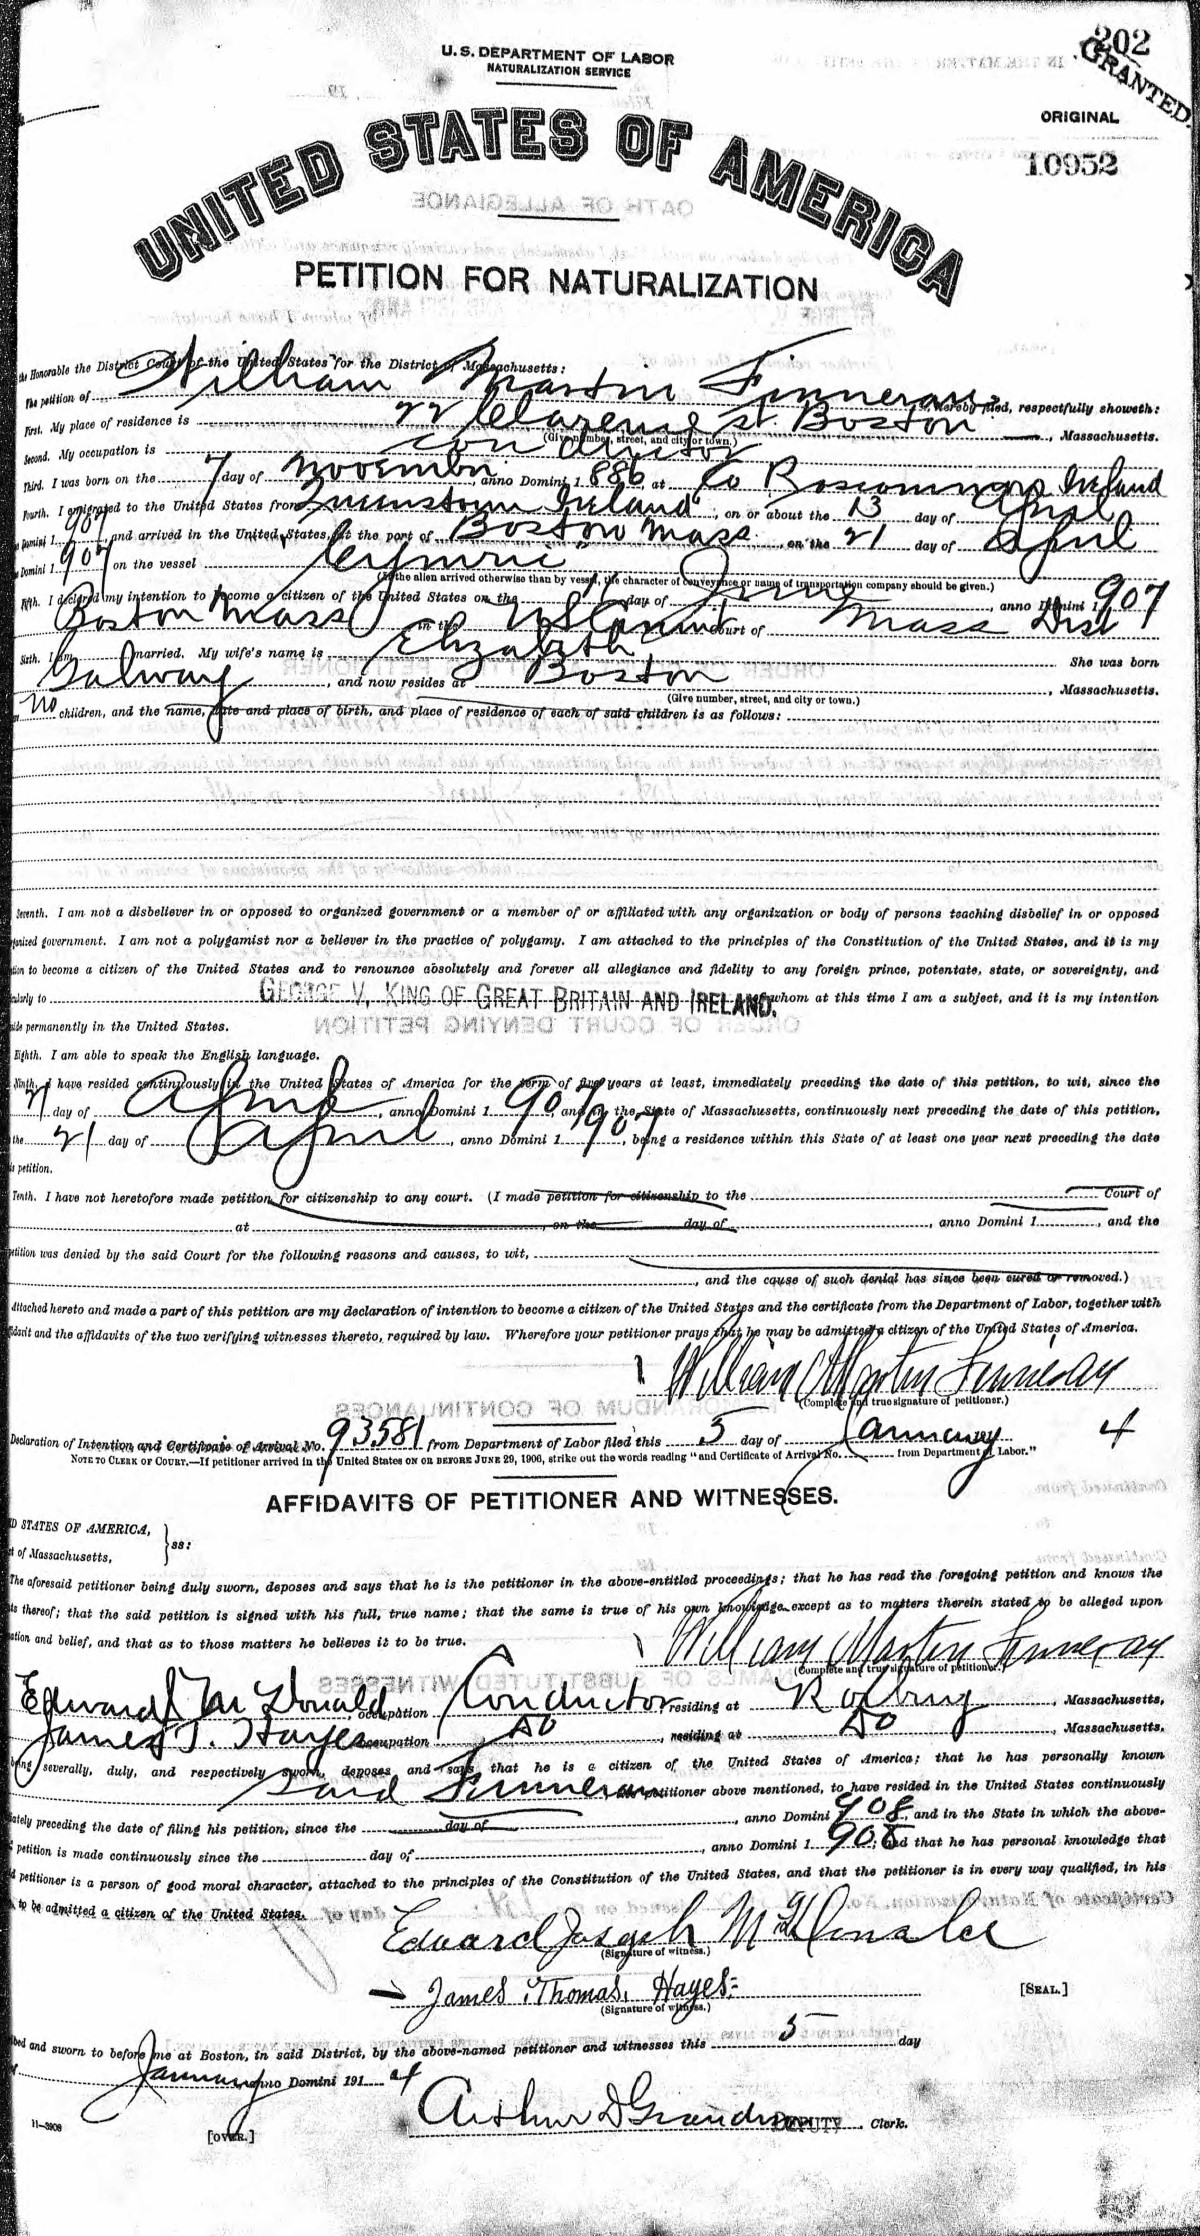 202
GRANTED.
U. S. DEPARTMENT OF LABOR
NATURALIZATION SERVICE
ORIGINAL
10952
UNITED STATES OF AMERICA
PETITION FOR NATURALIZATION
the Honorable the District Court of the United States for the District of Massachusetts:
The petition of William Martin Finneran, hereby filed, respectfully showeth:
First. My place of residence is 22 Clarence st. Boston, Massachusetts.
(Give number, street, and city or town.)
Second. My occupation is conductor
Third. I was born on the 7 day of November, anno Domini 1 886, at Co Roscommon Ireland
Fourth. I emigrated to the United States from Queenstown Ireland, on or about the 13 day of April
Domini 1 907, and arrived in the United States, at the port of Boston Mass., on the 21 day of April
Domini 1 907 on the vessel "Cymric"
(If the alien arrived otherwise than by vessel, the character of conveyance or name of transportation company should be given.)
Fifth. I declared my intention to become a citizen of the United States on the day of June, anno Domini 1 907
Boston Mass in the Court of Mass Dist
Sixth. I am married. My wife's name is Elizabeth She was born
Galway, and now resides at Boston, Massachusetts.
(Give number, street, and city or town.)
no children, and the name, date and place of birth, and place of residence of each of said children is as follows:
Seventh. I am not a disbeliever in or opposed to organized government or a member of or affiliated with any organization or body of persons teaching disbelief in or opposed
government. I am not a polygamist nor a believer in the practice of polygamy. I am attached to the principles of the Constitution of the United States, and it is my
to become a citizen of the United States and to renounce absolutely and forever all allegiance and fidelity to any foreign prince, potentate, state, or sovereignty, and
to GEORGE V, KING OF GREAT BRITAIN AND IRELAND. of whom at this time I am a subject, and it is my intention
permanently in the United States.
Eighth. I am able to speak the English language.
Ninth. I have resided continuously in the United States of America for the term of five years at least, immediately preceding the date of this petition, to wit, since the
21 day of April, anno Domini 1 907, and in the State of Massachusetts, continuously next preceding the date of this petition,
the 21 day of April, anno Domini 1 907, being a residence within this State of at least one year next preceding the date
petition.
Tenth. I have not heretofore made petition for citizenship to any court. (I made petition for citizenship to the Court of
at , on the day of , anno Domini 1 , and the
petition was denied by the said Court for the following reasons and causes, to wit,
, and the cause of such denial has since been cured or removed.)
Attached hereto and made a part of this petition are my declaration of intention to become a citizen of the United States and the certificate from the Department of Labor, together with
and the affidavits of the two verifying witnesses thereto, required by law. Wherefore your petitioner prays that he may be admitted a citizen of the United States of America.
William Martin Finneran
(Complete and true signature of petitioner.)
Declaration of Intention and Certificate of Arrival No. 93581 from Department of Labor filed this 5 day of January 4
NOTE TO CLERK OF COURT.—If petitioner arrived in the United States ON OR BEFORE JUNE 29, 1906, strike out the words reading "and Certificate of Arrival No. from Department of Labor."
AFFIDAVITS OF PETITIONER AND WITNESSES.
STATES OF AMERICA,
of Massachusetts,
ss:
The aforesaid petitioner being duly sworn, deposes and says that he is the petitioner in the above-entitled proceedings; that he has read the foregoing petition and knows the
thereof; that the said petition is signed with his full, true name; that the same is true of his own knowledge except as to matters therein stated to be alleged upon
and belief, and that as to those matters he believes it to be true.
William Martin Finneran
(Complete and true signature of petitioner.)
Edward J McDonald, occupation Conductor, residing at Roxbury, Massachusetts,
James T. Hayes occupation do, residing at do, Massachusetts,
being severally, duly, and respectively sworn, deposes and says that he is a citizen of the United States of America; that he has personally known
said Finneran the petitioner above mentioned, to have resided in the United States continuously
preceding the date of filing his petition, since the day of , anno Domini 1 908, and in the State in which the above-
petition is made continuously since the day of , anno Domini 1 908; and that he has personal knowledge that
petitioner is a person of good moral character, attached to the principles of the Constitution of the United States, and that the petitioner is in every way qualified, in his
to be admitted a citizen of the United States.
Edward Joseph McDonald
(Signature of witness.)
James Thomas Hayes
(Signature of witness.)
[SEAL.]
and sworn to before me at Boston, in said District, by the above-named petitioner and witnesses this 5 day
January anno Domini 191 4
DEPUTY Clerk.
11-3908
[OVER.]